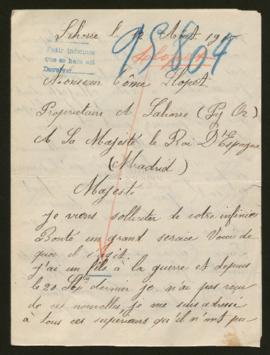 Lahorie le Août 1915
95804
Pedir informes
Monsieur Côme
Propriétaire à Lahorie (Py Or)
A Sa Majesté le Roi D'Espagne
(Madrid)
Majesté
je viens solliciter de votre infinie
Bonté un grant service Voici de
quoi il s'agit
j'ai un fils à la guerre et depuis
le 20 dernier je n'ai pas reçu
de ces nouvelles, je me suis
à tous ces supérieurs qu'il n'ont pu